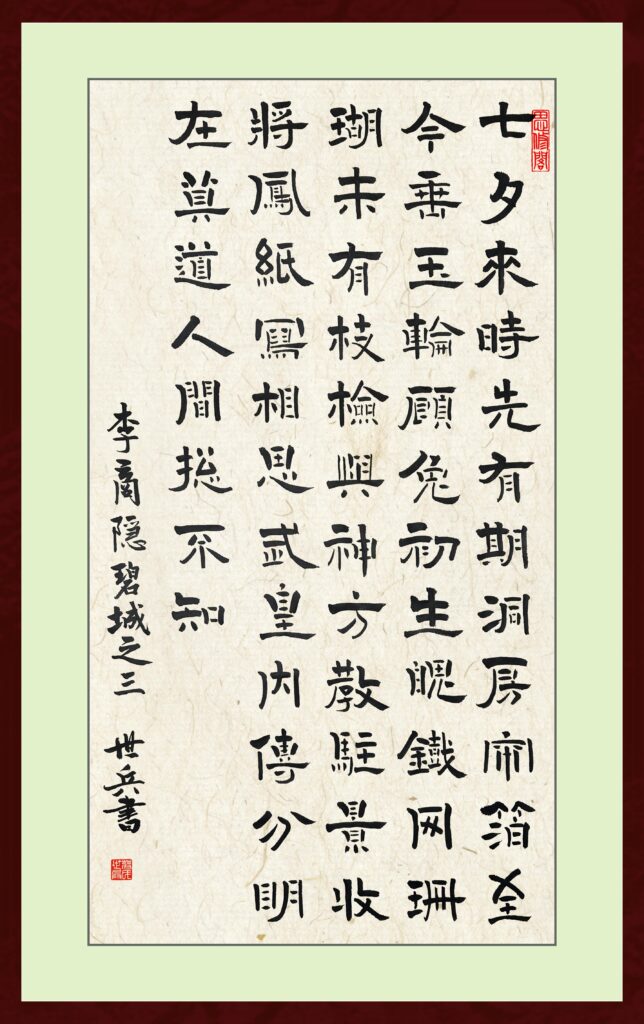 七夕來時先有期洞房帘箔至
今垂玉輪顧兔初生魄鐵网珊
瑚未有枝檢與神方教駐景收
將鳳紙寫相思武皇内傳分明
在莫道人間揔不知
李商隐碧城之三 世兵書